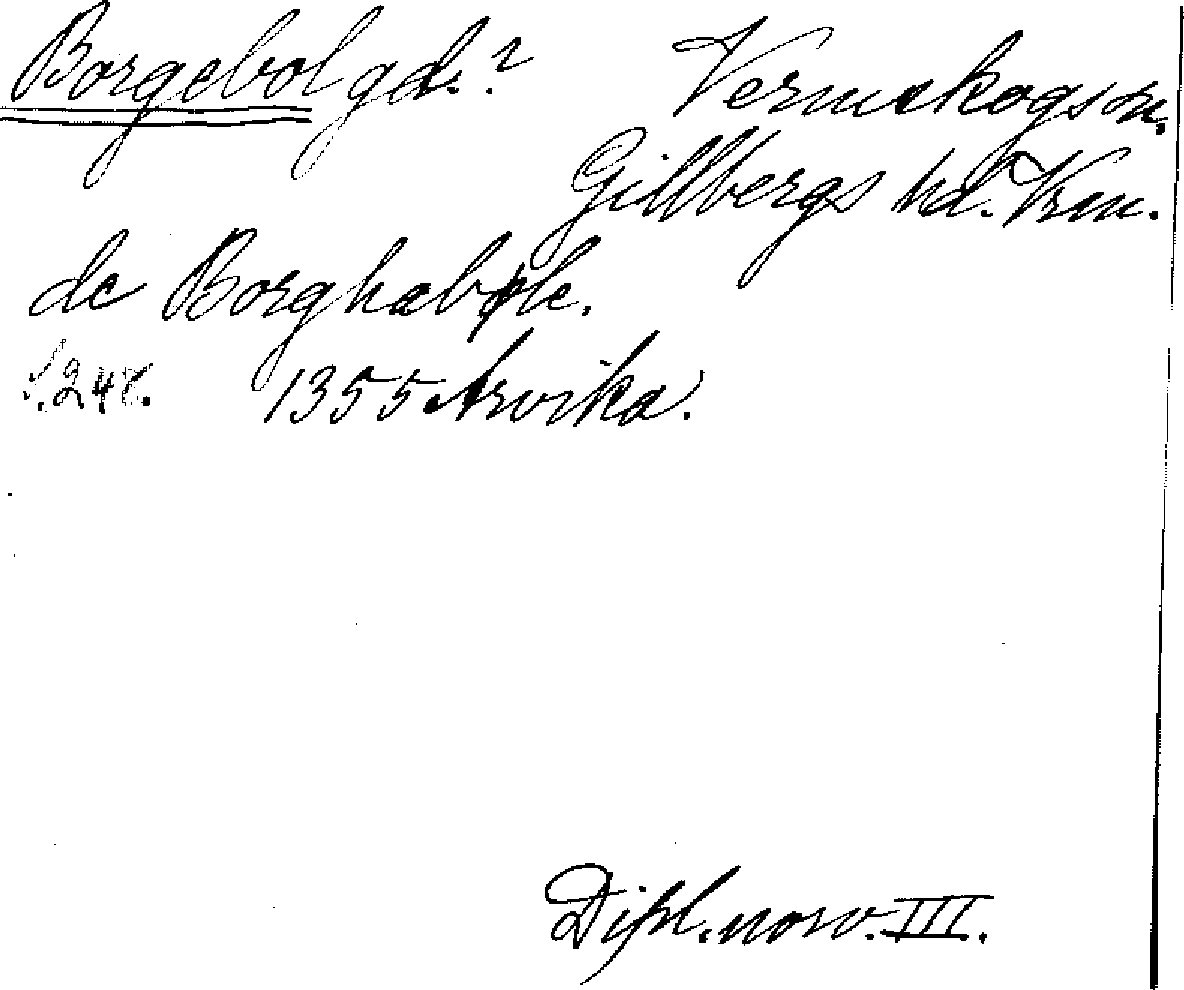 Borgebol gd.? Vermskogs sn.
Gillbergs hd. Vrm.
de Borghabøle.
S. 248. 1355 Arvika.
Dipl. norv. III.